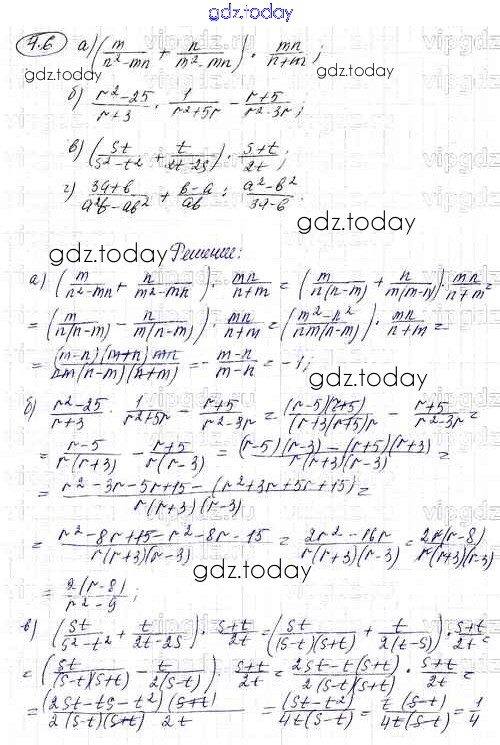 gdz.today
4.6 а) (m/(n²-mn) + n/(m²-mn)) · mn/(n+m);
б) (r²-25)/(r+3) · 1/(r²+5r) - (r+5)/(r²-3r);
в) (st/(s²-t²) + t/(2t-2s)) · (s+t)/2t;
г) (3a+b)/(a²b-ab²) + (b-a)/ab : (a²-b²)/(3a-b).
Решение:
а) (m/(n²-mn) + n/(m²-mn)) · mn/(n+m) = (m/(n(n-m)) + n/(m(m-n))) · mn/(n+m) =
= (m/(n(n-m)) - n/(m(n-m))) · mn/(n+m) = ((m²-n²)/(nm(n-m))) · mn/(n+m) =
= (m-n)(m+n)mn/(nm(n-m)(n+m)) = - (m-n)/(m-n) = -1;
б) (r²-25)/(r+3) · 1/(r²+5r) - (r+5)/(r²-3r) = (r-5)(r+5)/((r+3)(r+5)r) - (r+5)/(r²-3r) =
= (r-5)/(r(r+3)) - (r+5)/(r(r-3)) = ((r-5)(r-3) - (r+5)(r+3))/(r(r+3)(r-3)) =
= (r²-3r-5r+15-(r²+3r+5r+15))/(r(r+3)(r-3)) =
= (r²-8r+15-r²-8r-15)/(r(r+3)(r-3)) = (2r²-16r)/(r(r+3)(r-3)) = 2r(r-8)/(r(r+3)(r-3))
= 2(r-8)/(r²-9);
в) (st/(s²-t²) + t/(2t-2s)) · (s+t)/2t = (st/((s-t)(s+t)) + t/(2(t-s))) · (s+t)/2t =
= (st/((s-t)(s+t)) - t/(2(s-t))) · (s+t)/2t = (2st-t(s+t))/(2(s-t)(s+t)) · (s+t)/2t =
= (2st-ts-t²)(s+t)/(2(s-t)(s+t) 2t) = (st-t²)/(4t(s-t)) = t(s-t)/(4t(s-t)) = 1/4